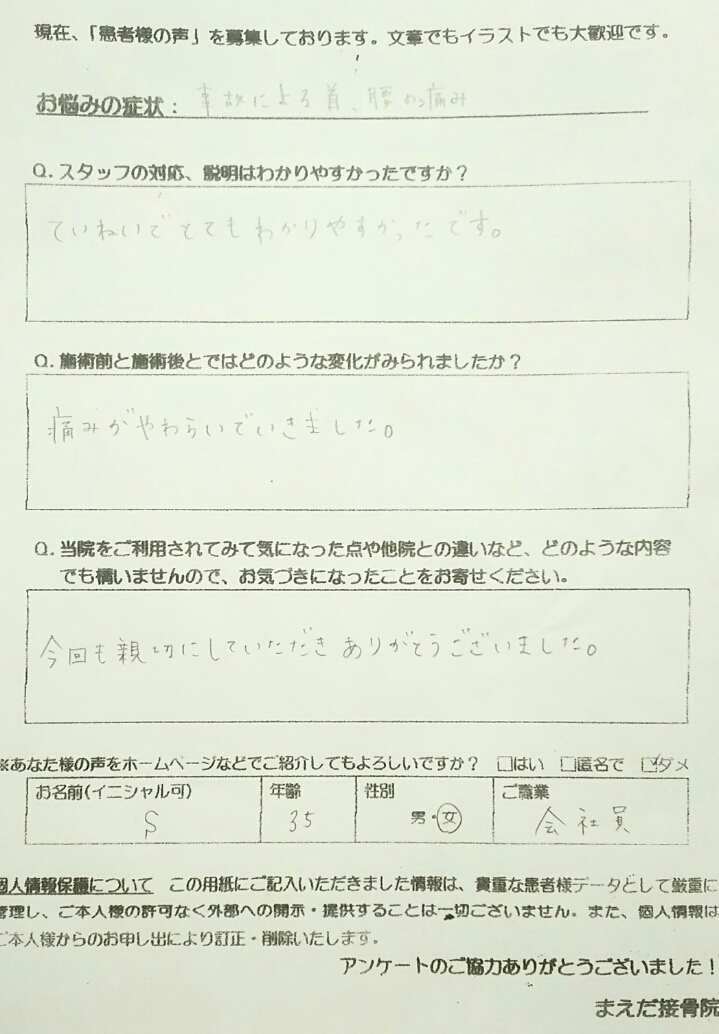 現在、「患者様の声」を募集しております。文章でもイラストでも大歓迎です。
お悩みの症状： 事故による首、腰の痛み
Q. スタッフの対応、説明はわかりやすかったですか？
ていねいでとてもわかりやすかったです。
Q. 施術前と施術後とではどのような変化がみられましたか？
痛みがやわらいでいきました。
Q. 当院をご利用されてみて気になった点や他院との違いなど、どのような内容
でも構いませんので、お気づきになったことをお寄せください。
今回も親切にしていただきありがとうございました。
※あなた様の声をホームページなどでご紹介してもよろしいですか？ □はい □匿名で ☑ダメ
お名前(イニシャル可) 年齢 性別 ご職業
S 35 男・女 会社員
個人情報保護について この用紙にご記入いただきました情報は、貴重な患者様データとして厳重に
管理し、ご本人様の許可なく外部への開示・提供することは一切ございません。また、個人情報は
ご本人様からのお申し出により訂正・削除いたします。
アンケートのご協力ありがとうございました！
まえだ接骨院